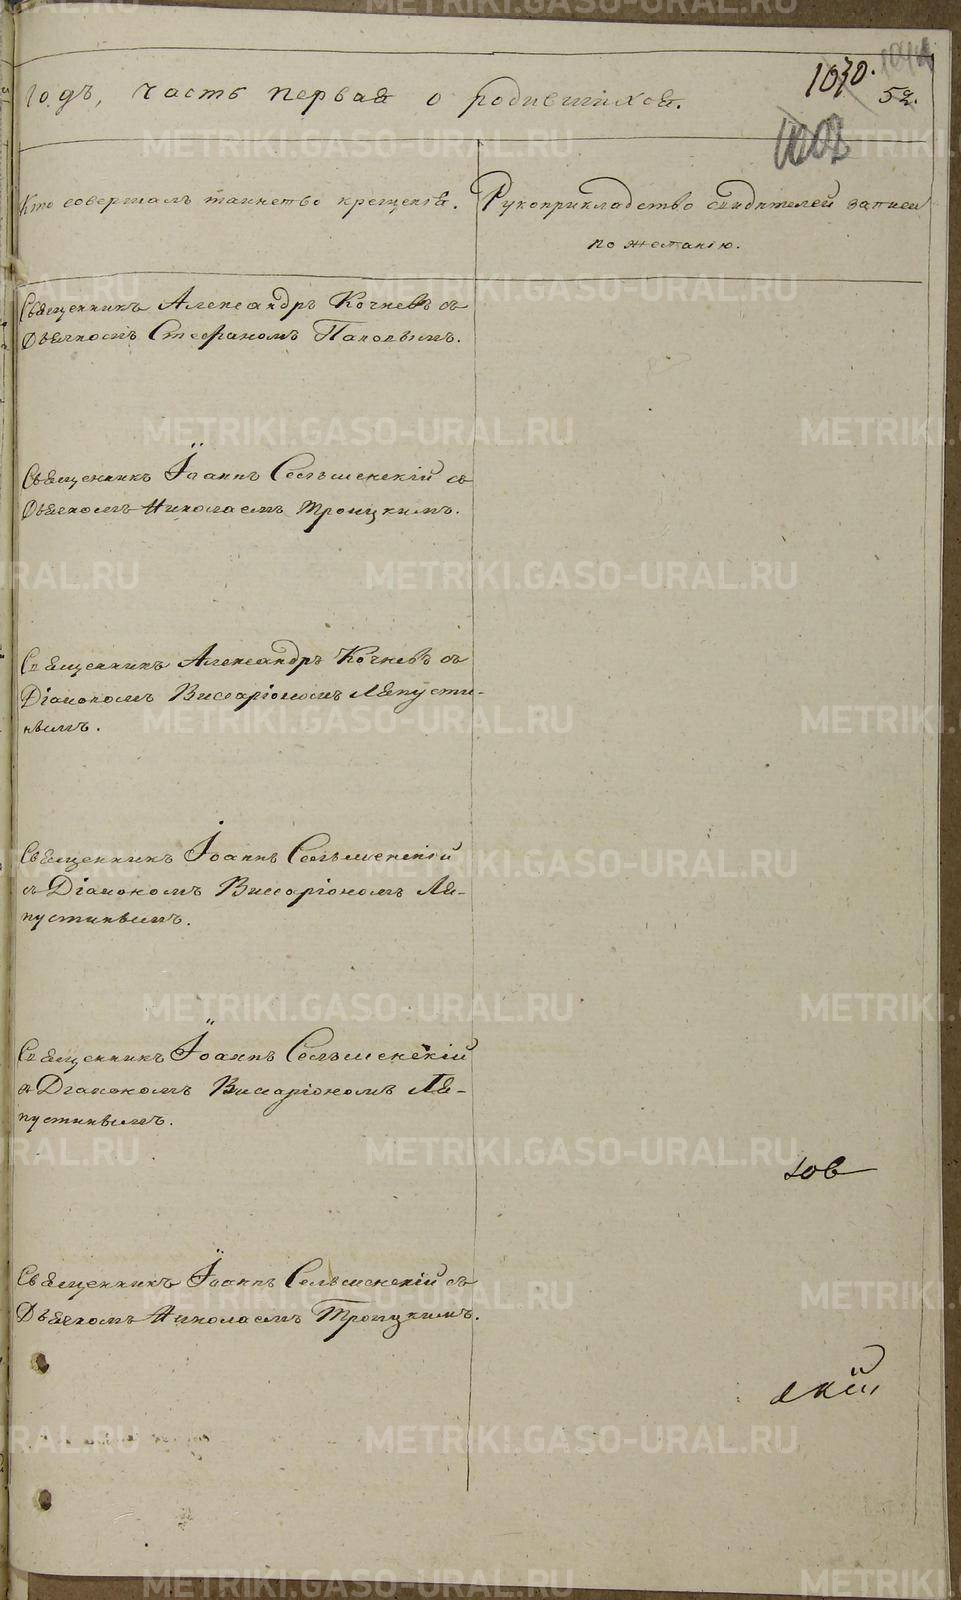 годъ, часть первая о родившихся.
1070.
52.
Кто совершалъ таинство крещенія.
Рукоприкладство свидѣтелей записи
по желанію.
Священникъ Александръ Кочневъ съ
Дьячкомъ Стефаномъ Поповымъ.
Священникъ Іоаннъ Сельменскій съ
Дьячкомъ Николаемъ Троицкимъ.
Священникъ Александръ Кочневъ съ
Діакономъ Виссаріономъ Ляпусти-
нымъ.
Священникъ Іоаннъ Сельменскій
съ Діакономъ Виссаріономъ Ля-
пустинымъ.
Священникъ Іоаннъ Сельменскій
съ Діакономъ Виссаріономъ Ля-
пустинымъ.
ковъ
Священникъ Іоаннъ Сельменскій съ
Дьячкомъ Николаемъ Троицкимъ.
скій
METRIKI.GASO-URAL.RU